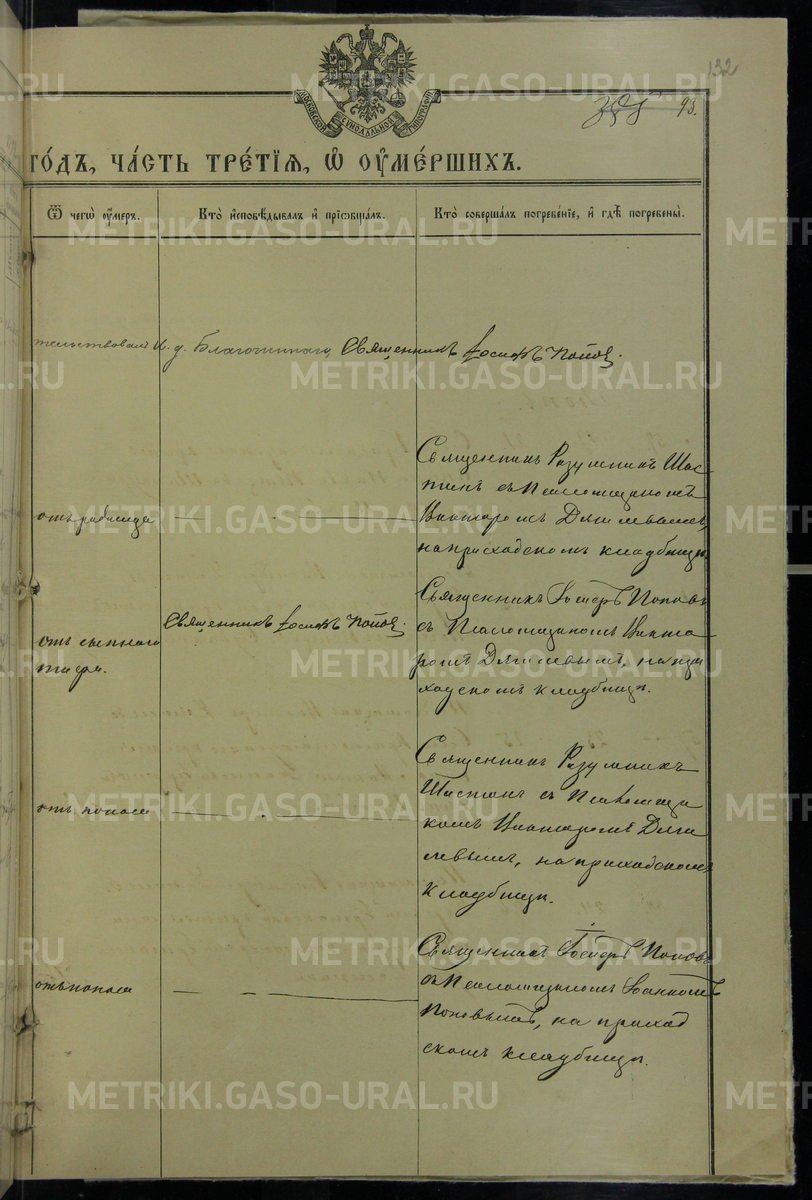 132
93.
МОСКОВСКОЙ СѴНОДАЛЬНОЙ ТИПОГРАФІИ
ГО́ДЪ, ЧА́СТЬ ТРЕ́ТІЯ, Ѡ҆ ОУ҆МЕ́РШИХЪ.
Ѿ чегѡ̀ оу҆́меръ.
Кто̀ и҆сповѣ́дывалъ и҆ прїѡбща́лъ.
Кто̀ соверша́лъ погребе́нїе, и҆ гдѣ̀ погребены̀.
тельствовалъ И. д. Благочиннаго, Священникъ Іосифъ Поповъ.
отъ родимца
Священникъ Разумникъ Шас
тинъ съ Псаломщикомъ
Виктаромъ Дягилевымъ,
на приходскомъ кладбищѣ.
отъ сыпнаго
тифа.
Священникъ Іосифъ Поповъ.
Священникъ Іосифъ Поповъ
съ Псаломщикомъ Викта
ромъ Дягилевымъ, на при
ходскомъ кладбищѣ.
отъ поноса
Священникъ Разумникъ
Шастинъ съ Псаломщи
комъ Виктаромъ Дяги
левымъ, на приходскомъ
кладбищѣ.
отъ поноса
Священникъ Іосифъ Поповъ
съ Псаломщикомъ Іоанномъ
Поповымъ, на приход
скомъ кладбищѣ.
METRIKI.GASO-URAL.RU